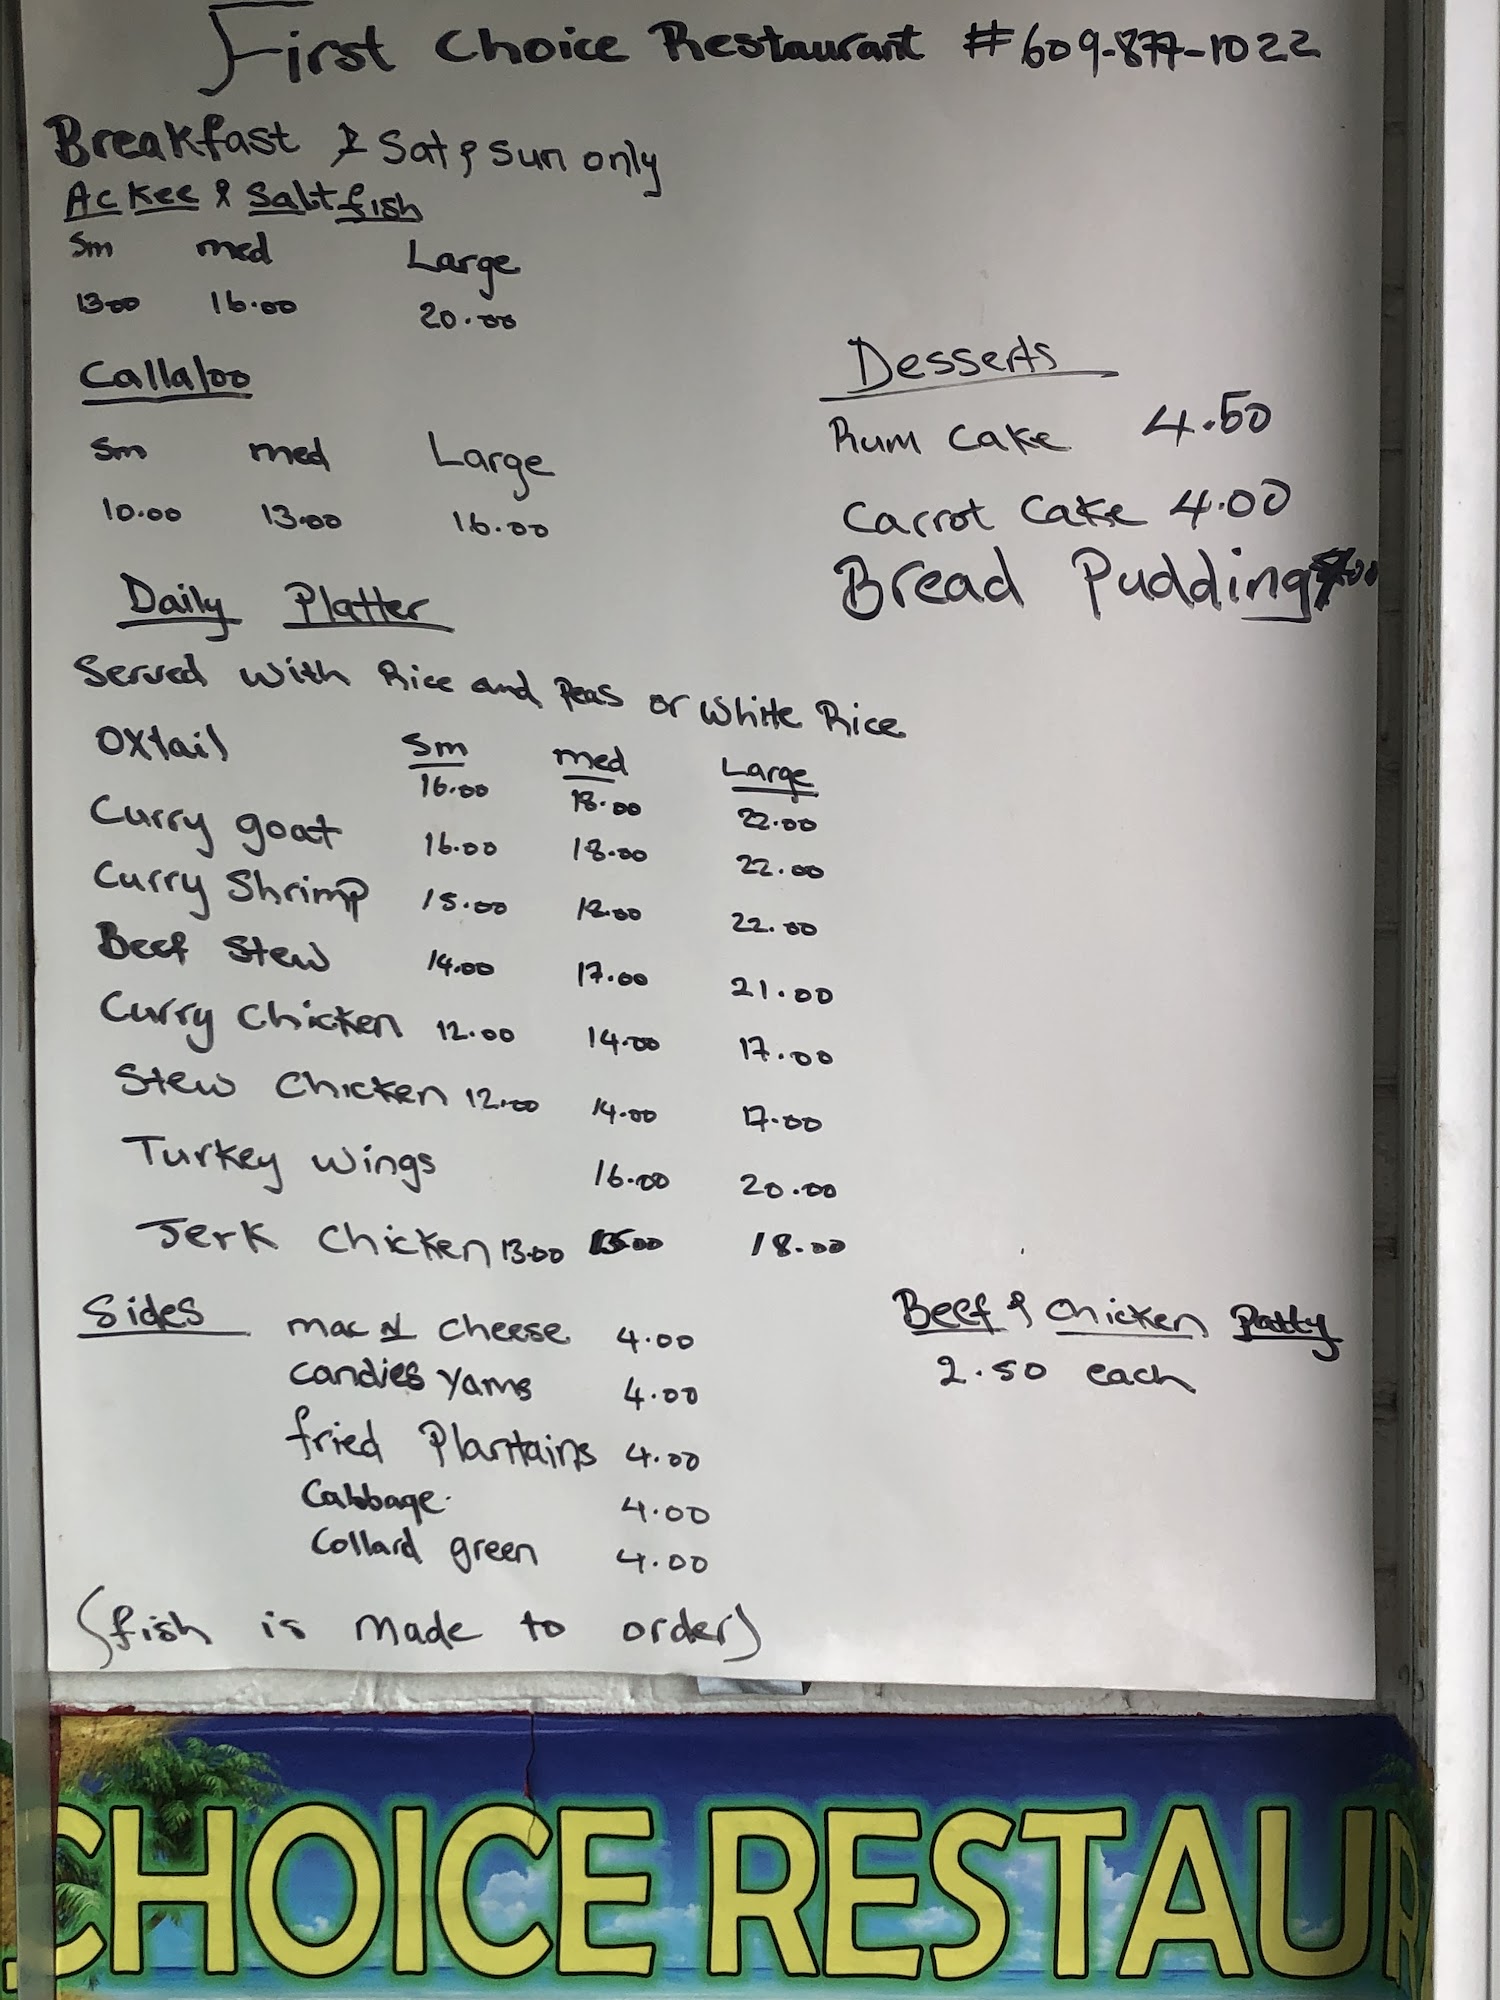 First Choice Restaurant #609-877-1022
Breakfast Sat & Sun only
Ackee & Saltfish
Sm med Large
13.00 16.00 20.00
Callaloo
Sm med Large
10.00 13.00 16.00
Desserts
Rum Cake 4.50
Carrot Cake 4.00
Bread Pudding
Daily Platter
Served with Rice and Peas or White Rice
Sm med Large
Oxtail 16.00 18.00 22.00
Curry goat 16.00 18.00 22.00
Curry Shrimp 15.00 18.00 22.00
Beef Stew 14.00 17.00 21.00
Curry Chicken 12.00 14.00 17.00
Stew Chicken 12.00 14.00 17.00
Turkey wings 16.00 20.00
Jerk Chicken 13.00 15.00 18.00
Sides
mac N cheese 4.00
candies yams 4.00
fried Plantains 4.00
Cabbage 4.00
Collard green 4.00
Beef & Chicken Patty
2.50 each
(fish is made to order)
CHOICE RESTAUR